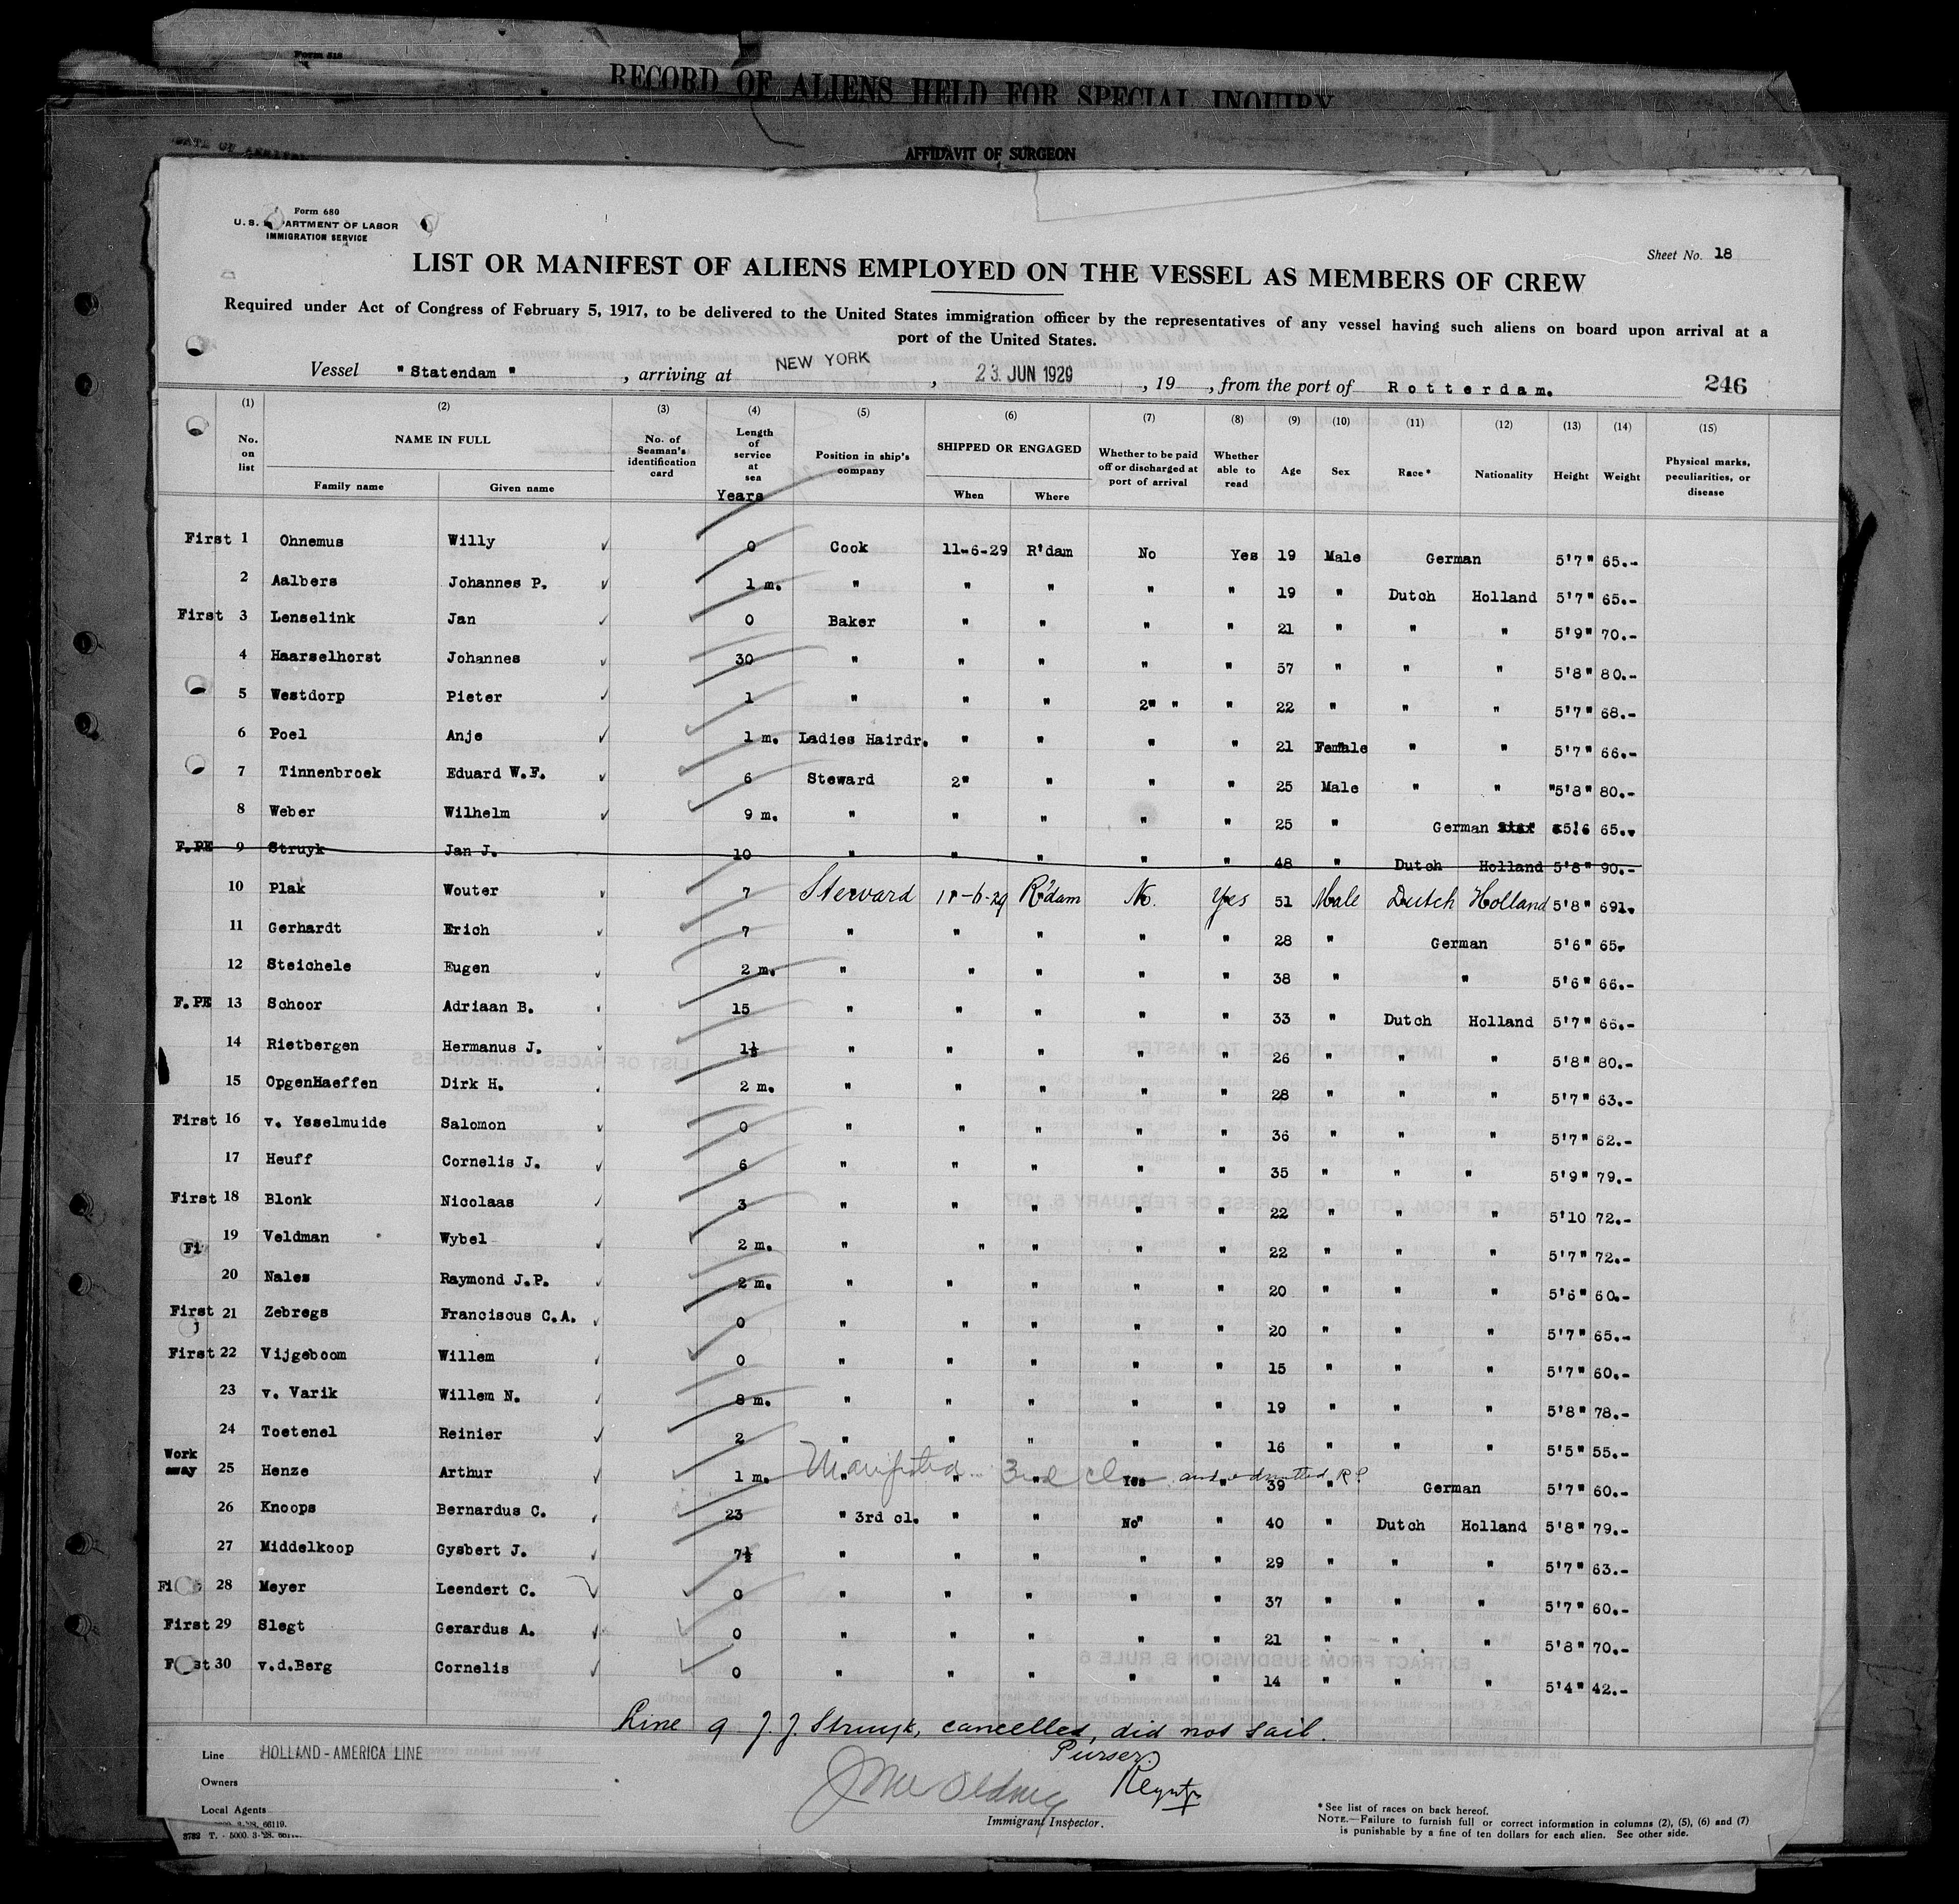 Form 518
RECORD OF ALIENS HELD FOR SPECIAL INQUIRY
AFFIDAVIT OF SURGEON
Form 680
U. S. DEPARTMENT OF LABOR
IMMIGRATION SERVICE
Sheet No. 18
LIST OR MANIFEST OF ALIENS EMPLOYED ON THE VESSEL AS MEMBERS OF CREW
Required under Act of Congress of February 5, 1917, to be delivered to the United States immigration officer by the representatives of any vessel having such aliens on board upon arrival at a
port of the United States.
Vessel "Statendam", arriving at NEW YORK, 23 JUN 1929, 19 , from the port of Rotterdam. 246
(1) (2) (3) (4) (5) (6) (7) (8) (9) (10) (11) (12) (13) (14) (15)
No. on list NAME IN FULL Family name Given name No. of Seaman's identification card Length of service at sea Years Position in ship's company SHIPPED OR ENGAGED When Where Whether to be paid off or discharged at port of arrival Whether able to read Age Sex Race* Nationality Height Weight Physical marks, peculiarities, or disease
First 1 Ohnemus Willy 0 Cook 11-6-29 R'dam No Yes 19 Male German 5'7" 65.-
2 Aalbers Johannes P. 1 m. " " " " " 19 " Dutch Holland 5'7" 65.-
First 3 Lenselink Jan 0 Baker " " " " 21 " " " 5'9" 70.-
4 Haarselhorst Johannes 30 " " " " " 57 " " " 5'8" 80.-
5 Westdorp Pieter 1 " " " 2" " " 22 " " " 5'7" 68.-
6 Poel Anje 1 m. Ladies Hairdr. " " " " 21 Female " " 5'7" 66.-
7 Tinnenbroek Eduard W.F. 6 Steward 2" " " " 25 Male " " "5'8" 80.-
8 Weber Wilhelm 9 m. " " " " " 25 " German 5'6 65.-
F.PE 9 Struyk Jan J. 10 " " " " " 48 " Dutch Holland 5'8" 90.-
10 Plak Wouter 7 Steward 11-6-29 R'dam No. Yes 51 Male Dutch Holland 5'8" 691.
11 Gerhardt Erich 7 " " " " " 28 " German 5'6" 65.
12 Steichele Eugen 2 m. " " " " " 38 " " 5'6" 66.-
F.PE 13 Schoor Adriaan B. 15 " " " " " 33 " Dutch Holland 5'7" 65.-
14 Rietbergen Hermanus J. 1½ " " " " " 26 " " " 5'8" 80.-
15 OpgenHaeffen Dirk H. 2 m. " " " " " 28 " " " 5'7" 63.-
First 16 v. Ysselmuide Salomon 0 " " " " " 36 " " " 5'7" 62.-
17 Heuff Cornelis J. 6 " " " " " 35 " " " 5'9" 79.-
First 18 Blonk Nicolaas 3 " " " " " 22 " " " 5'10 72.-
Fi 19 Veldman Wybel 2 m. " " " " " 22 " " " 5'7" 72.-
20 Nales Raymond J.P. 2 m. " " " " " 20 " " " 5'6" 60.-
First 21 Zebregs Franciscus C.A. 0 " " " " " 20 " " " 5'7" 65.-
First 22 Vijgeboom Willem 0 " " " " " 15 " " " 5'7" 60.-
23 v. Varik Willem N. 8 m. " " " " " 19 " " " 5'8" 78.-
24 Toetenel Reinier 2 " " " " " 16 " " " 5'5" 55.-
Work away 25 Henze Arthur 1 m. " Manifested " 3rd cl " Yes and admitted " 39 " German 5'7" 60.-
26 Knoops Bernardus C. 23 " 3rd cl. " " No" " 40 " Dutch Holland 5'8" 79.-
27 Middelkoop Gysbert J. 7½ " " " " " 29 " " " 5'7" 63.-
28 Meyer Leendert C. 0 " " " " " 37 " " " 5'7" 60.-
First 29 Slegt Gerardus A. 0 " " " " " 21 " " " 5'8" 70.-
First 30 v.d.Berg Cornelis 0 " " " " " 14 " " " 5'4" 42.-
Line 9 J. J. Struyk, cancelled, did not sail.
Purser.
Line HOLLAND-AMERICA LINE
Owners
Local Agents
Immigrant Inspector.
3782 T. - 5000. 3-'28. 66119.
*See list of races on back hereof.
NOTE.—Failure to furnish full or correct information in columns (2), (5), (6) and (7)
is punishable by a fine of ten dollars for each alien. See other side.